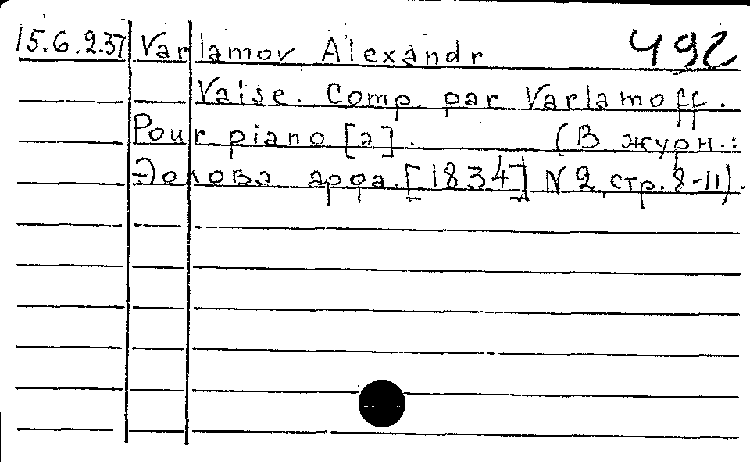 15.6.2.37 Varlamov Alexandr 492
Valse. Comp. par Varlamoff.
Pour piano [a]. (В журн.:
Эолова арфа. [1834] N 2, стр. 8-11).